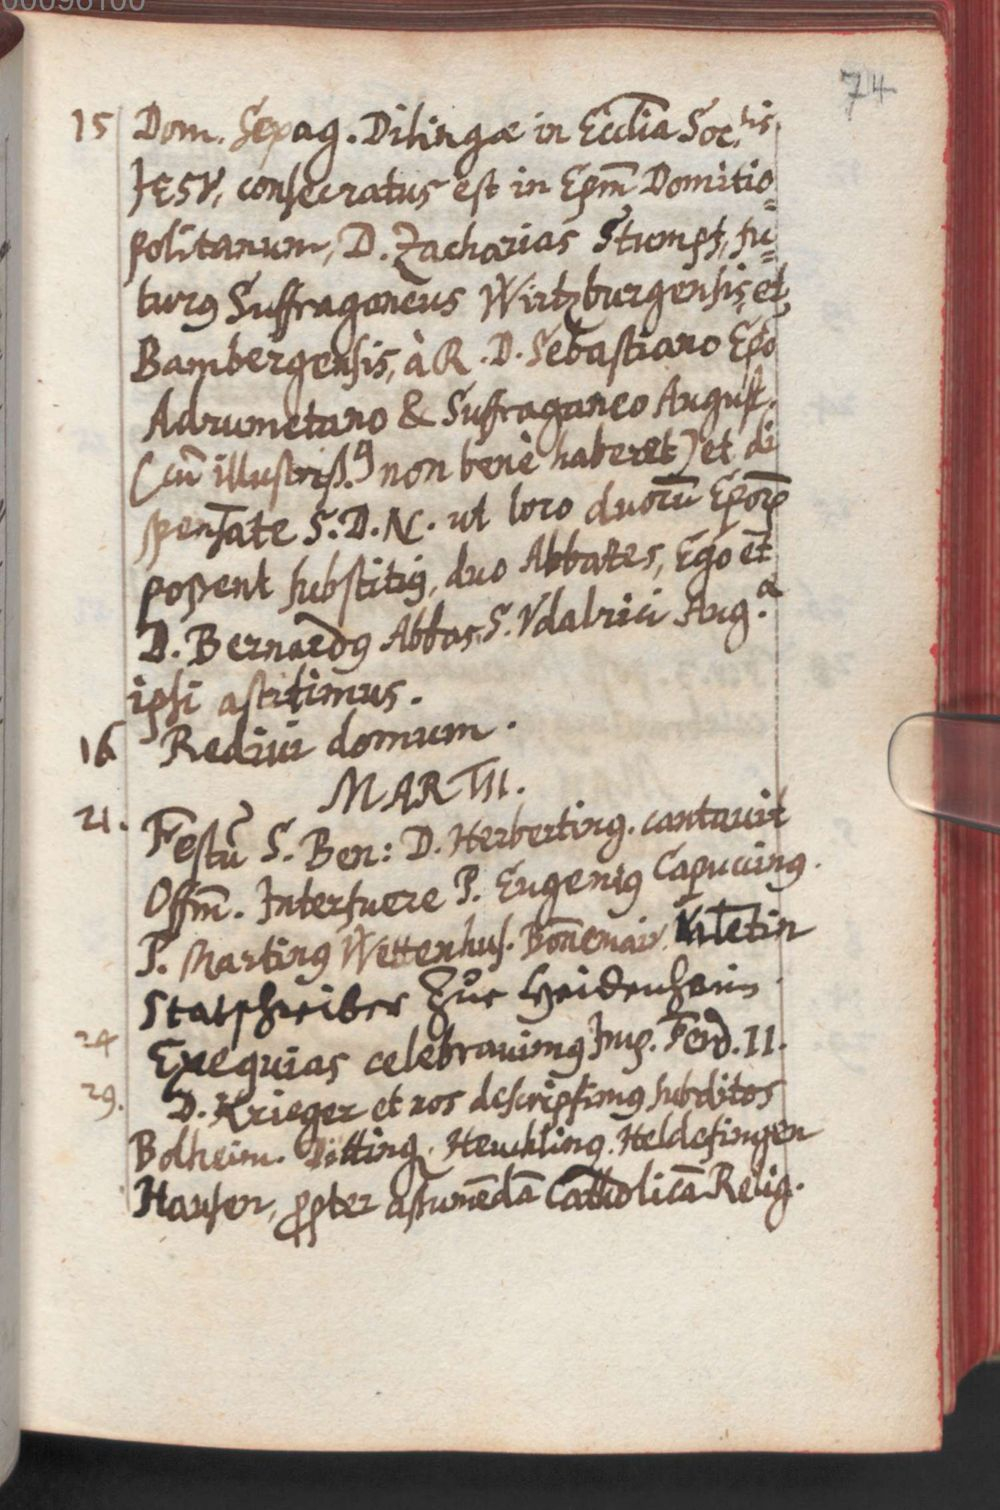 00096100
74
15 Dom. Sexag. Dilingæ in Eccl̄ia Soc.tis
JESV, consecratus est in Ep̄m Domitio=
politanum, D. Zacharias Stumpf, fu=
turꝯ Suffraganeus Wirtzburgensis, et
Bambergensis, à R. D. Sebastiano Ep̄o
Adrumetano & Suffraganeo August.
(cū illustriss.ꝯ non benè haberet) et di
spensāte S.D.N. ut loco duorū Ep̄orꝝ
possent substitui, duo Abbates, Ego et
D. Bernardꝯ Abbas S. Vdalrici Aug.æ
ipsi astitimus.
16 Redivi domum.
MARTII.
21. Festū S. Ben: D. Herberting. cantauit
Offm̄. Interfuere P. Eugeniꝯ Capucinꝯ.
P. Martinꝯ Wettenhus. Bōnemair
Statschreiber zur Heidenheim
24 Exequias celebrauimꝯ Imp. Ferd. II.
29. D. Krieger et nos descripsimꝯ subditos
Bolheim. Dötting. Heuchling. Heldefingen
Hausen, ꝓpter assumēdā Catholicā Relig.